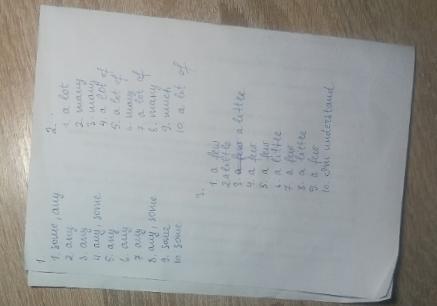 1.
1. some, any
2. any
3. any
4. any, some
5. any
6. any
7. any
8. any, some
9. some
10. some
2.
1. a lot
2. many
3. many
4. a lot of
5. a lot of
6. many
7. a lot of
8. many
9. much
10. a lot of
3.
1. a few
2. a little
3. a few a little
4. a few
5. a few
6. a little
7. a few
8. a little
9. a few
10. understand